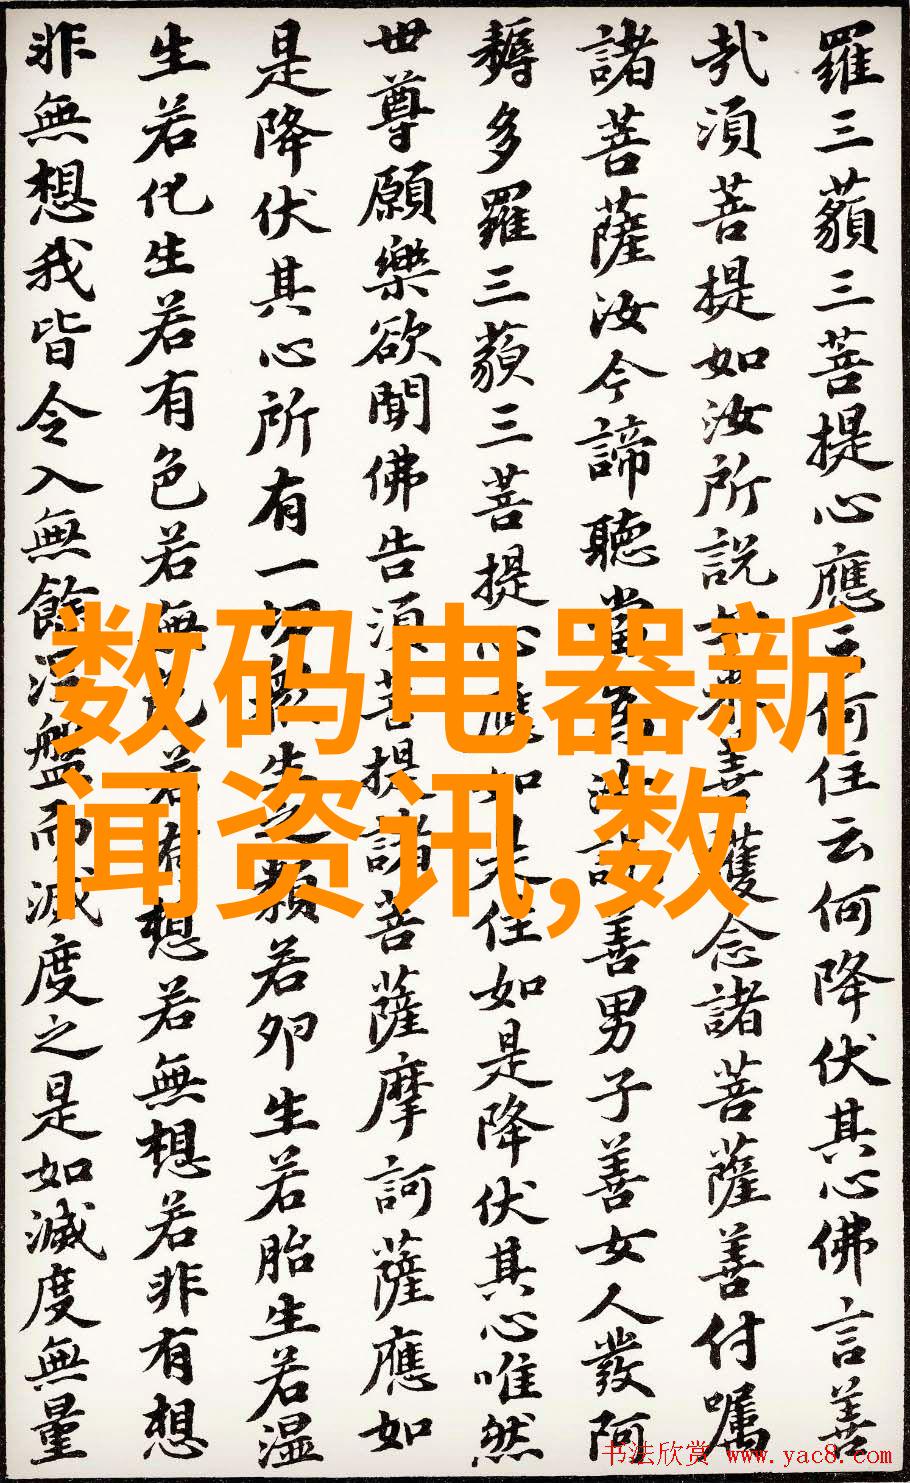 羅三藐三菩提心應云何住云何降伏其心佛言善
哉須菩提如汝所説如來善護念諸菩薩善付囑
諸菩薩汝今諦聽當為汝説善男子善女人發阿
耨多羅三藐三菩提心應如是住如是降伏其心唯然
世尊願樂欲聞佛告須菩提諸菩薩摩訶薩應如
是降伏其心所有一切眾生之類若卵生若胎生若湿
生若化生若有色若無色若有想若無想若非有想
非無想我皆令入無餘涅盤而滅度之是如滅度無量
数码电器新
闻资讯,数
书法欣赏 www.yac8.com